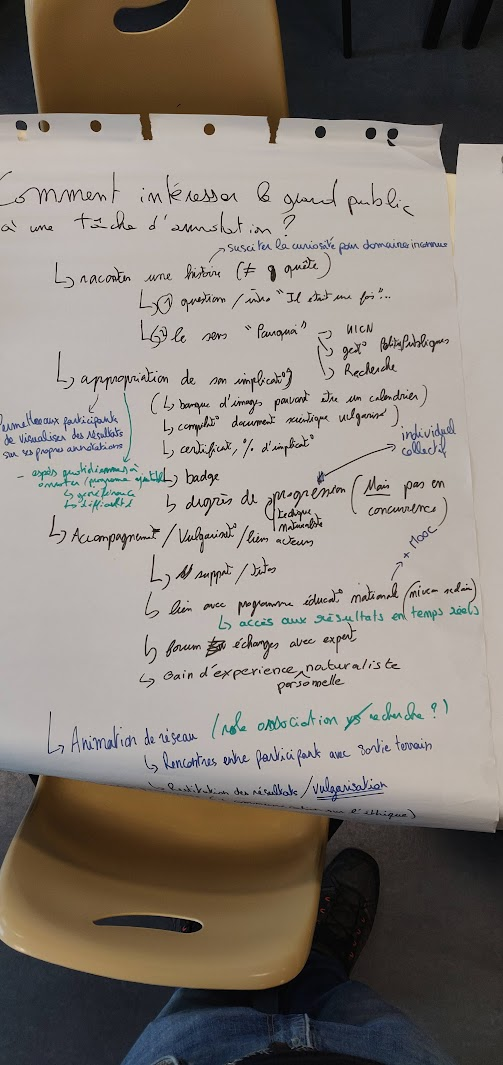 Comment intéresser le grand public
à une tâche d'annotation ?
susciter la curiosité pour domaine inconnu
↳ raconter une histoire (≠ quête)
↳ ① question / intro "Il était une fois"...
↳ ② le sens "Pourquoi"
→ UICN
→ gest° Politiq Publiques
→ Recherche
↳ appropriation de son implicat°
(↳ banque d'images pouvant être un calendrier)
(↳ document scientique vulgarisé)
↳ certificat, % d'implicat°
↳ badge
↳ progression (Mais pas en
concurrence)
technique
naturaliste
individuel
collectif
Permettre aux participants
de visualiser des résultats
sur ses propres annotations
- quotidiennes à
↳ difficulté
↳ Accompagnement / Vulgarisat° / liens acteurs
↳ support / tutos
↳ lien avec programme éducat° national (niveau scolaire)
+ MOOC
↳ accès aux résultats en temps réels
↳ forum échanges avec expert
↳ Gain d'experience naturaliste
personnelle
↳ Animation de réseau (role association recherche ?)
↳ Rencontres entre participants avec sortie terrain
↳ Restitution des résultats / vulgarisation
l'éthique)